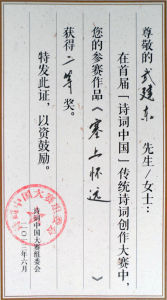 尊敬的 武建东 先生/女士：
在首届「诗词中国」传统诗词创作大赛中，
您的参赛作品《塞上怀远》
获得 二等 奖。
特发此证，以资鼓励。
诗词中国大赛组委会
二〇一三年六月